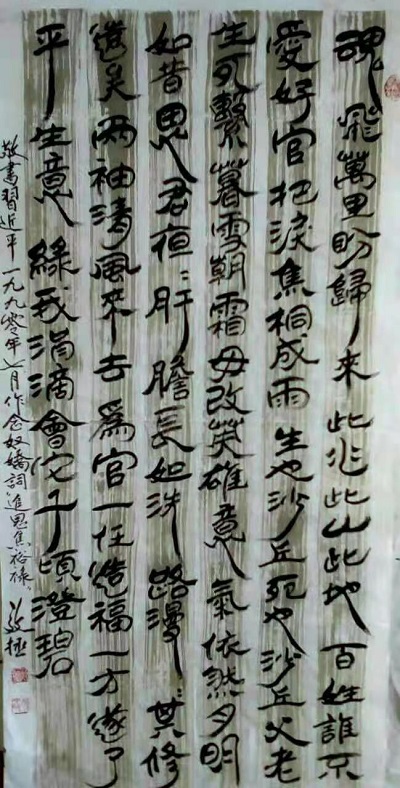 魂飛萬里盼歸來此水此山此地百姓誰不
愛好官把淚焦桐成雨生也沙丘死也沙丘父老
生死繫暮雪朝霜毋改英雄意氣依然月明
如昔思君夜〻肝膽長如洗路漫〻其修
遠矣兩袖清風來去為官一任造福一方遂了
平生意綠我涓滴會它千頃澄碧
敬書習近平一九九零年七月作念奴嬌詞追思焦裕禄